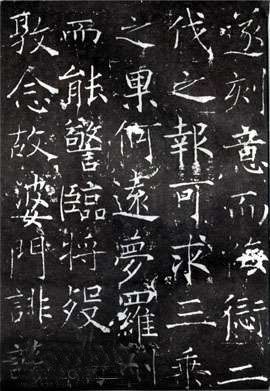 遂刻意而悔愆二
伐之報可求三乘
之果何遠夢羅
而能警臨將歿
敦念故婆門誹